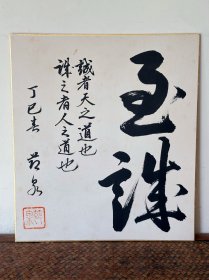 至誠
誠者天之道也
誠之者人之道也
丁巳春 泉